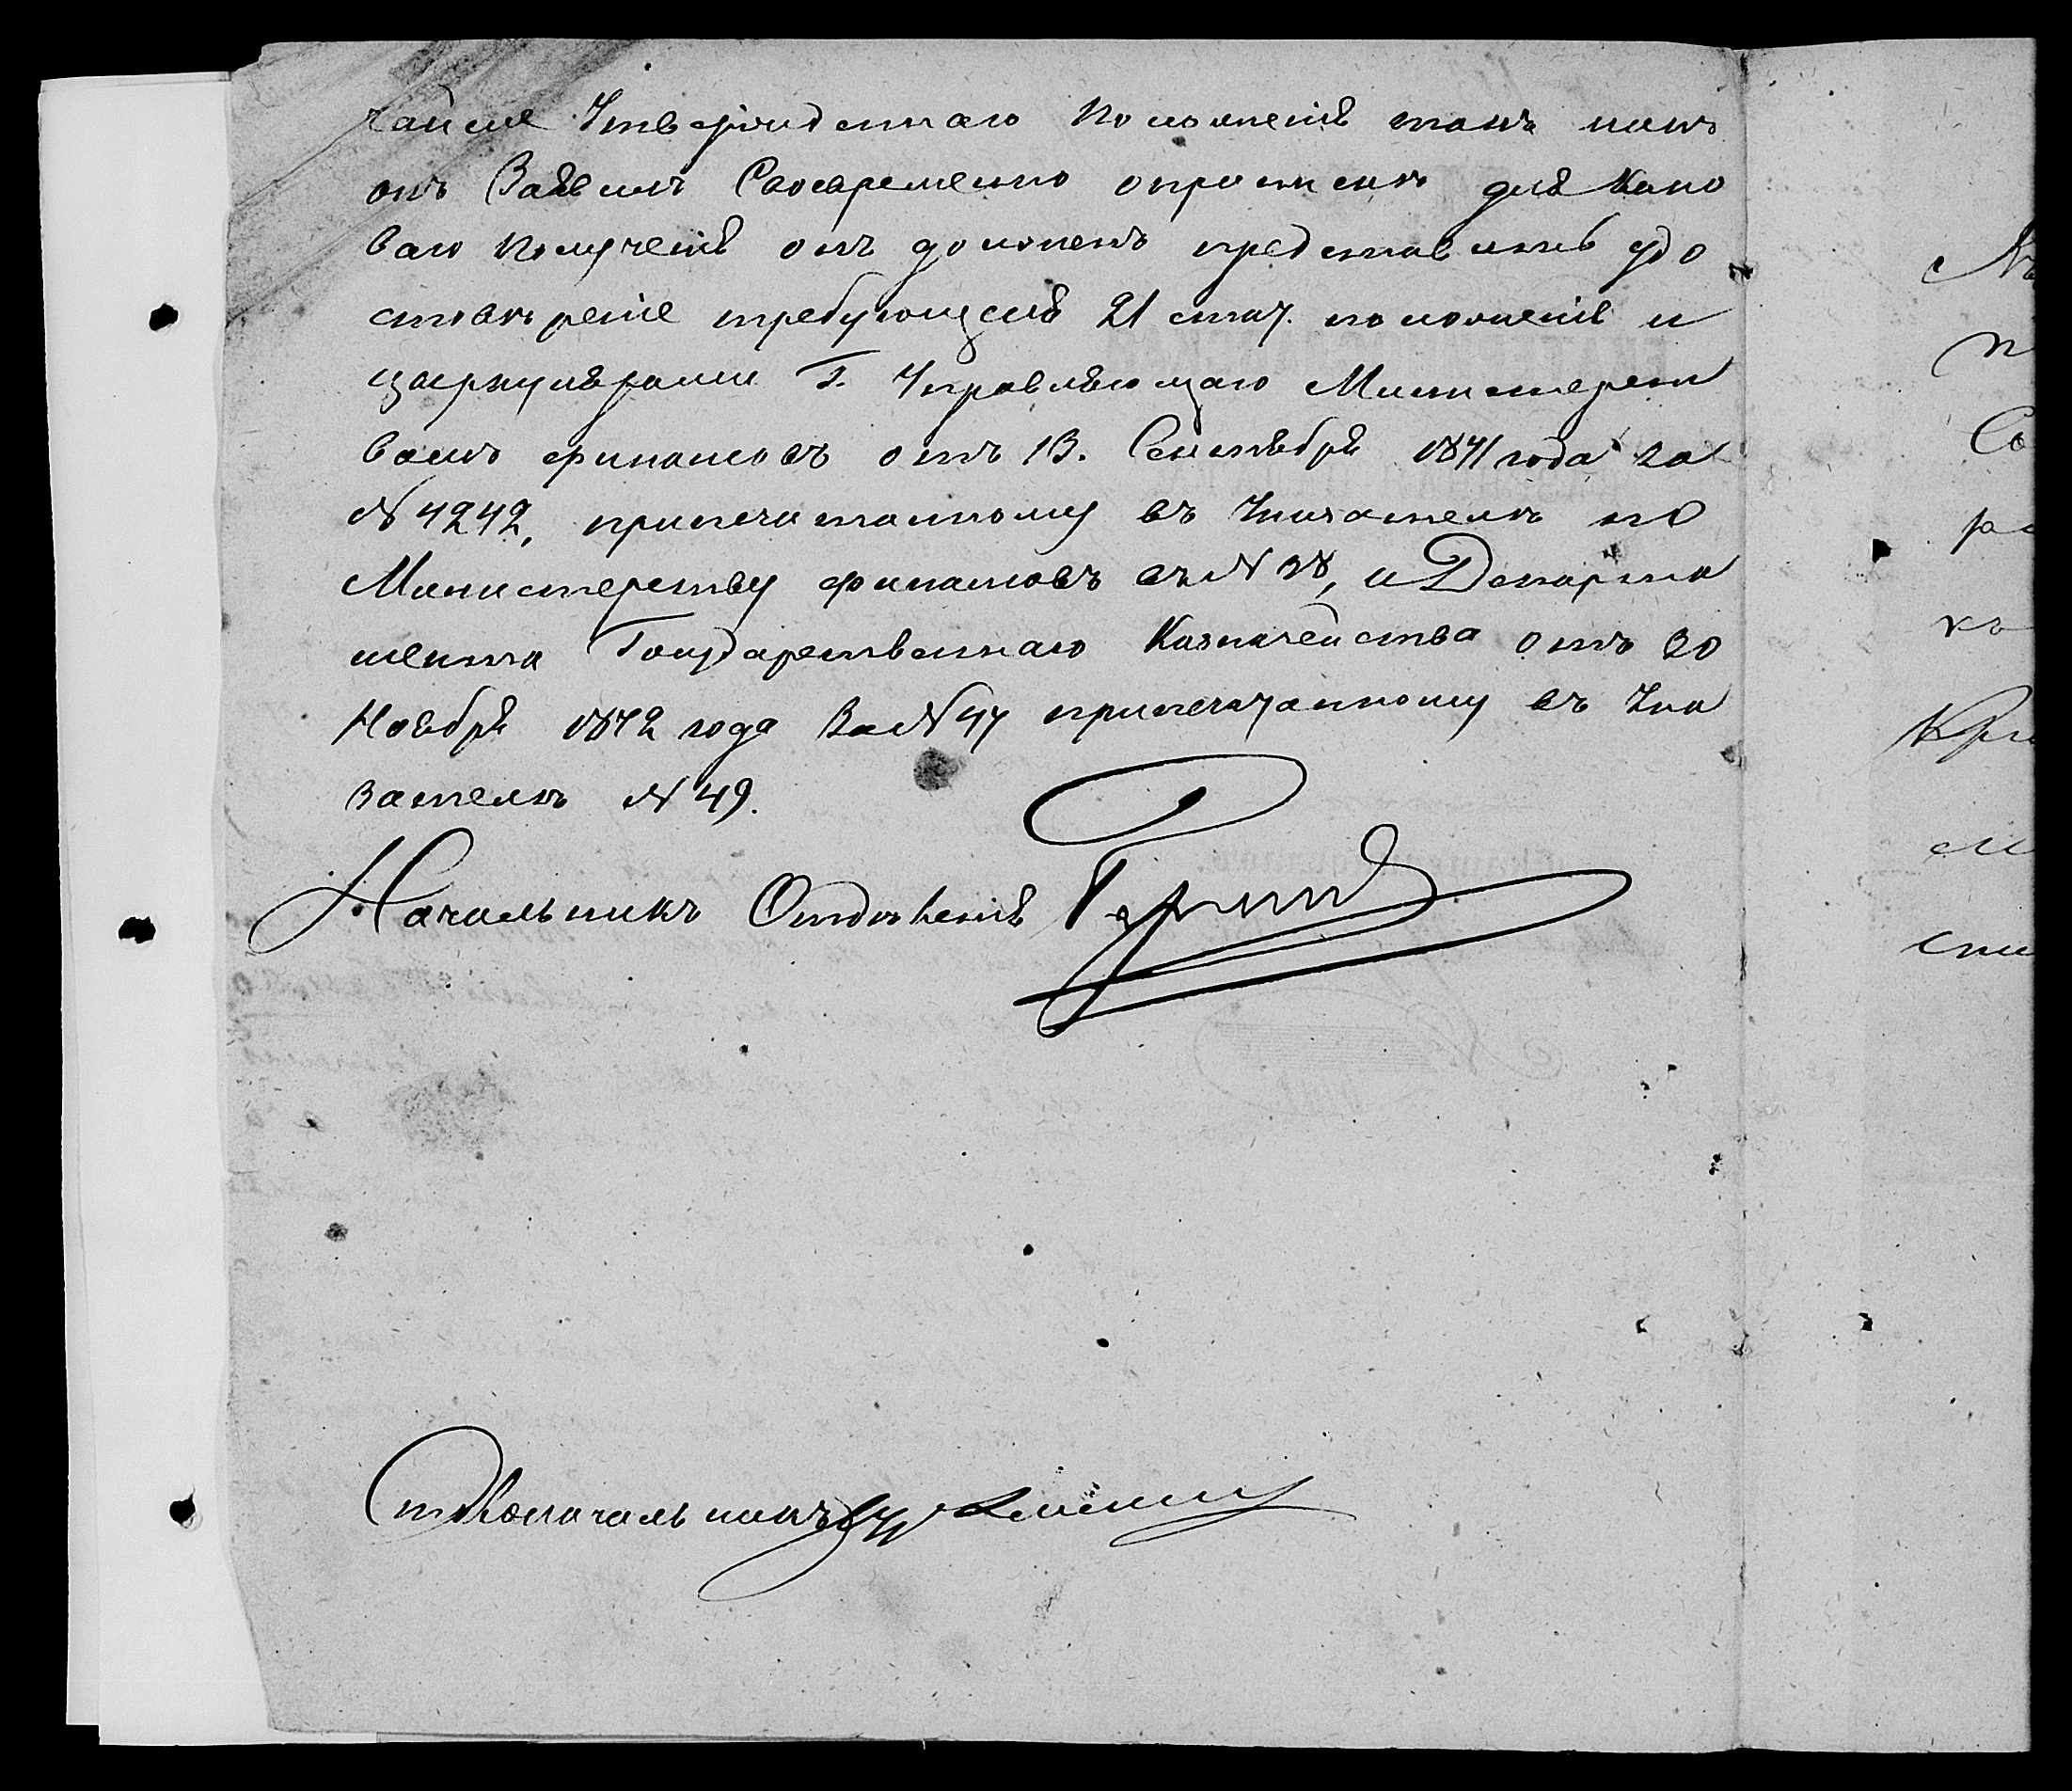 чайше Утвержденнаго положенія такъ какъ
онъ Заявилъ Своевременно о пропискѣ для како
ваго полученія онъ долженъ представить удо
стовѣреніе требующееся 21 стат. положенія и
циркулярами Г. Управляющаго Министерст
вомъ финансовъ отъ 13. Сентября 1871 года за
№ 4242, припечатанному въ Указателѣ по
Министерству финансовъ въ № 38, и Департа
мента Государственнаго Казначейства отъ 30
Ноября 1872 года За № 47 припечатанному въ Ука
зателѣ № 49.
Начальникъ Отдѣленія
Столоначальникъ
Кри